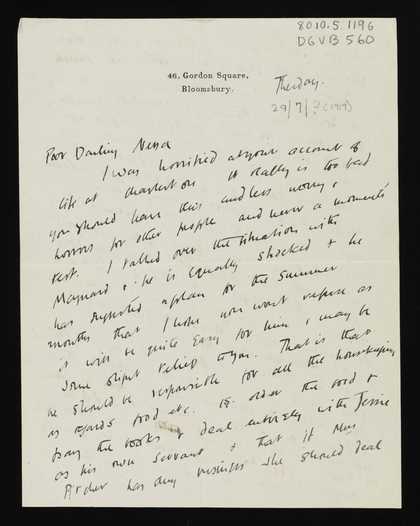 8010.5.1196
DGVB 560
46, Gordon Square,
Bloomsbury.
Thursday.
29/7/?(1919)
Poor Darling Nessa
I was horrified at your account of
life at Charleston It really is too bad
you should have this endless worry &
horrors for other people and never a moments'
rest. I talked over the situation with
Maynard & he is equally shocked & he
has suggested a plan for the summer
months that I hope you wont refuse as
it will be quite easy for him & may be
some slight relief to you. That is that
he should be responsible for all the housekeeping
as regards food etc. ie. order the food &
pay the books & deal entirely with Jessie
as his own servant & that if Mrs
Pitcher has any visitors she should deal